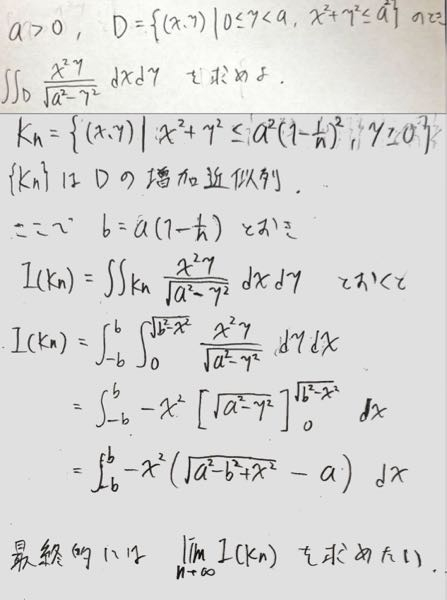 a > 0, D = {(x,y) | 0 ≤ y < a, x² + y² ≤ a²} のとき
∬_D x²y/√(a²-y²) dxdy を求めよ.
Kn = {(x,y) | x² + y² ≤ a²(1-1/n)², y ≥ 0}
{Kn} は D の増加近似列.
ここで b = a(1-1/n) とおき
I(Kn) = ∬_Kn x²y/√(a²-y²) dxdy とおくと
I(Kn) = ∫_{-b}^{b} ∫_0^{√(b²-x²)} x²y/√(a²-y²) dydx
= ∫_{-b}^{b} -x² [√(a²-y²)]_0^{√(b²-x²)} dx
= ∫_{-b}^{b} -x² (√(a²-b²+x²) - a) dx
最終的には lim_{n→∞} I(Kn) を求めたい..